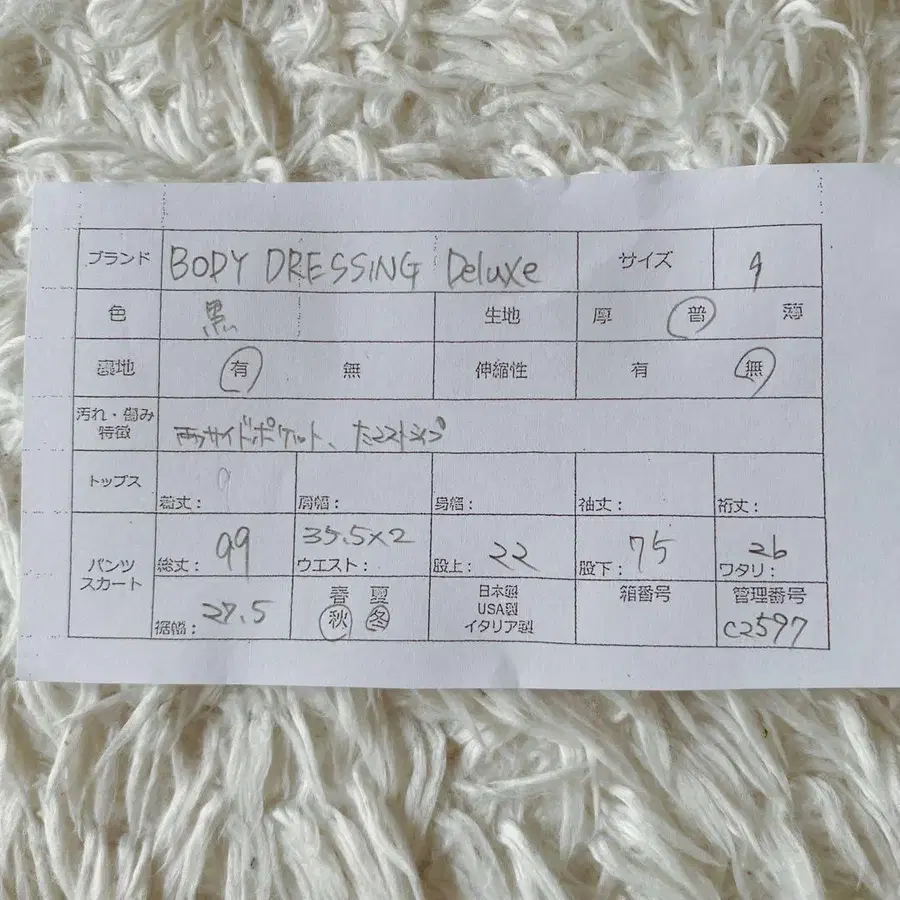 ブランド BODY DRESSING Deluxe サイズ
色 黒 生地 厚 普 薄
裏地 有 無 伸縮性 有 無
汚れ・傷み
特徴
両サイドポケット、
トップス 着丈： 肩幅： 身幅： 袖丈： 裄丈：
パンツ
スカート
総丈： 99
35.5×2
ウエスト：
股上： 22
股下： 75
26
ワタリ：
裾幅： 27.5
春 夏
秋 冬
日本製
USA製
イタリア製
箱番号
管理番号
C2597